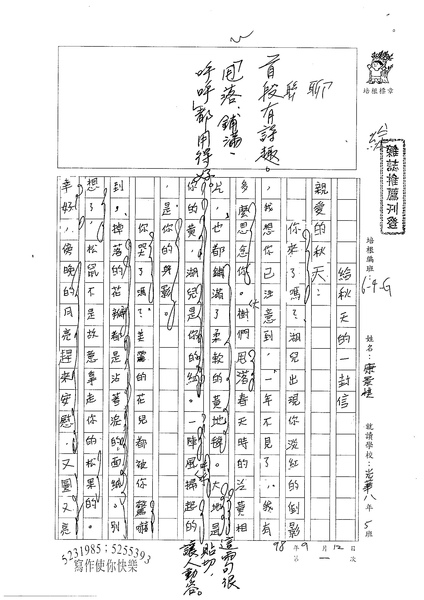 聊聊
首段有詩趣。
「甩落、鋪滿、
呼呼」都用得好
培根標章
雜誌推薦刊登
培根編班：6-4-G
姓名：康
就讀學校：光華八年5班
98年9月12日
第一次
給秋天的一封信
親愛的秋天：
你來了嗎？湖兒出現你淡紅的倒影
，我想你已注意到，一年不見了，我有
多麼思念你。樹們甩落春天時的泛黃相
片，也都鋪滿了柔軟的黃地毯。大地是
你的黃，湖兒是你的紅。一陣風掃起的
，是你的與影。
你哭了嗎？美麗的花兒都被你驚嚇
到，掉落的花瓣都是沾著淚的面紙。別
想了，松鼠不是故意拿走你的松果的。
幸好，傍晚的月亮趕來安慰，又圓又亮
這兩句很
貼切，
讓人動容。
5231985；5255393
寫作使你快樂